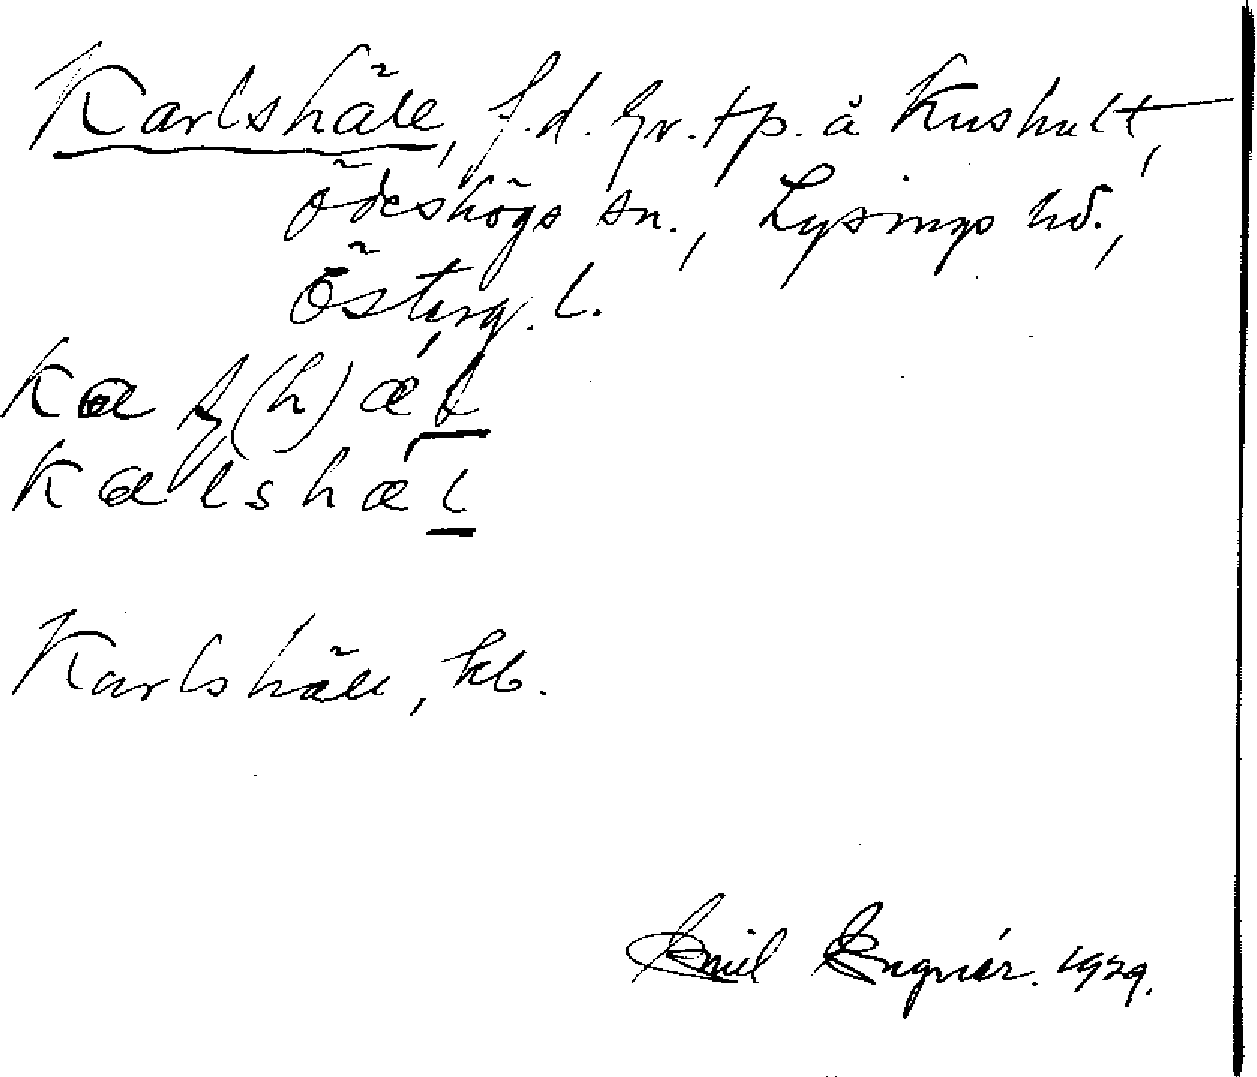 Karlshäll, f.d. gr.tp. å Kushult,
Ödeshögs sn., Lysings hd.,
Österg. l.
Kalshæl
Karlshäll, kb.
Emil Engnér. 1929.